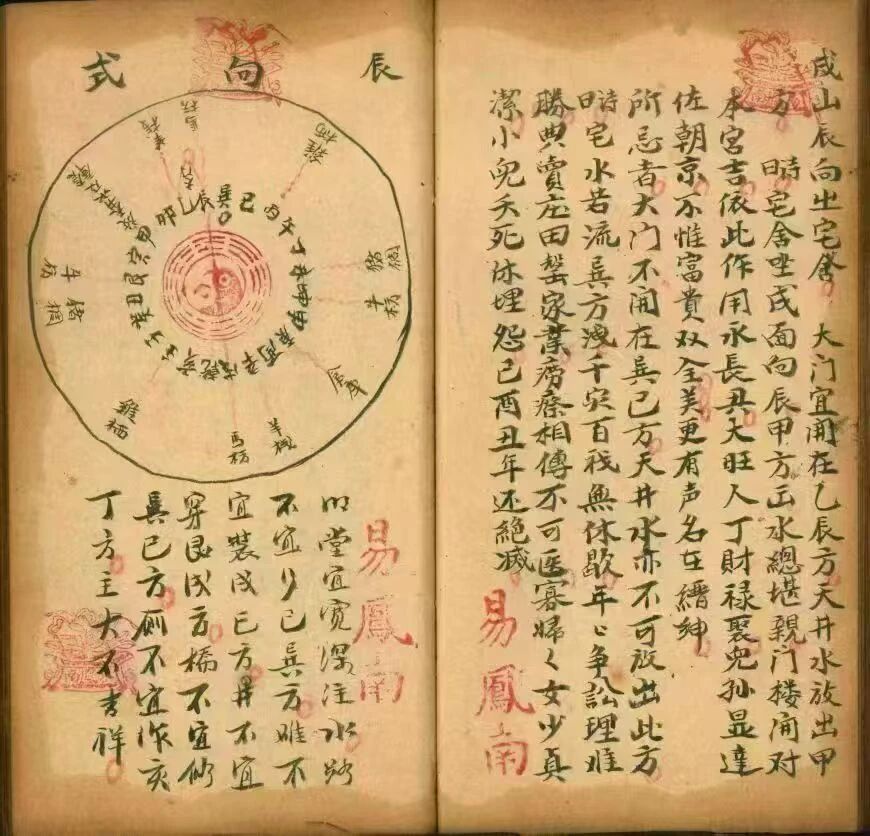 戌山辰向出宅舍 大门宜開在乙辰方天井水放出甲
方 時宅舍坐戌面向辰甲方出水總堪親门楼開对
本宮吉依此作用永長大旺人丁財禄聚兒孫显達
佐朝京不惟富貴双全美更有声名在縉紳
所忌者大门不開在巽巳方天井水亦不可放出此方
時宅水若流巽方洩千灾百禍無休歇年〻争訟理难
勝典賣庄田罄家業癆瘵相傳不可医寡婦〻女少真
潔小兒夭死休埋怨巳酉丑年还絶滅
易鳳南
辰向式
雞栖
馬枋
羊棧
牛枋
豬椆
雞栖
馬枋
羊棧
豬椆
牛枋
甲卯乙辰巽巳丙午丁
戌乾亥壬子癸丑艮寅
明堂宜寬深注水路
不宜行巳巽方堆不
宜裝戌巳方井不宜
穿艮戌方橋不宜修
巽巳方厠不宜作亥
丁方主大不吉祥
易鳳南